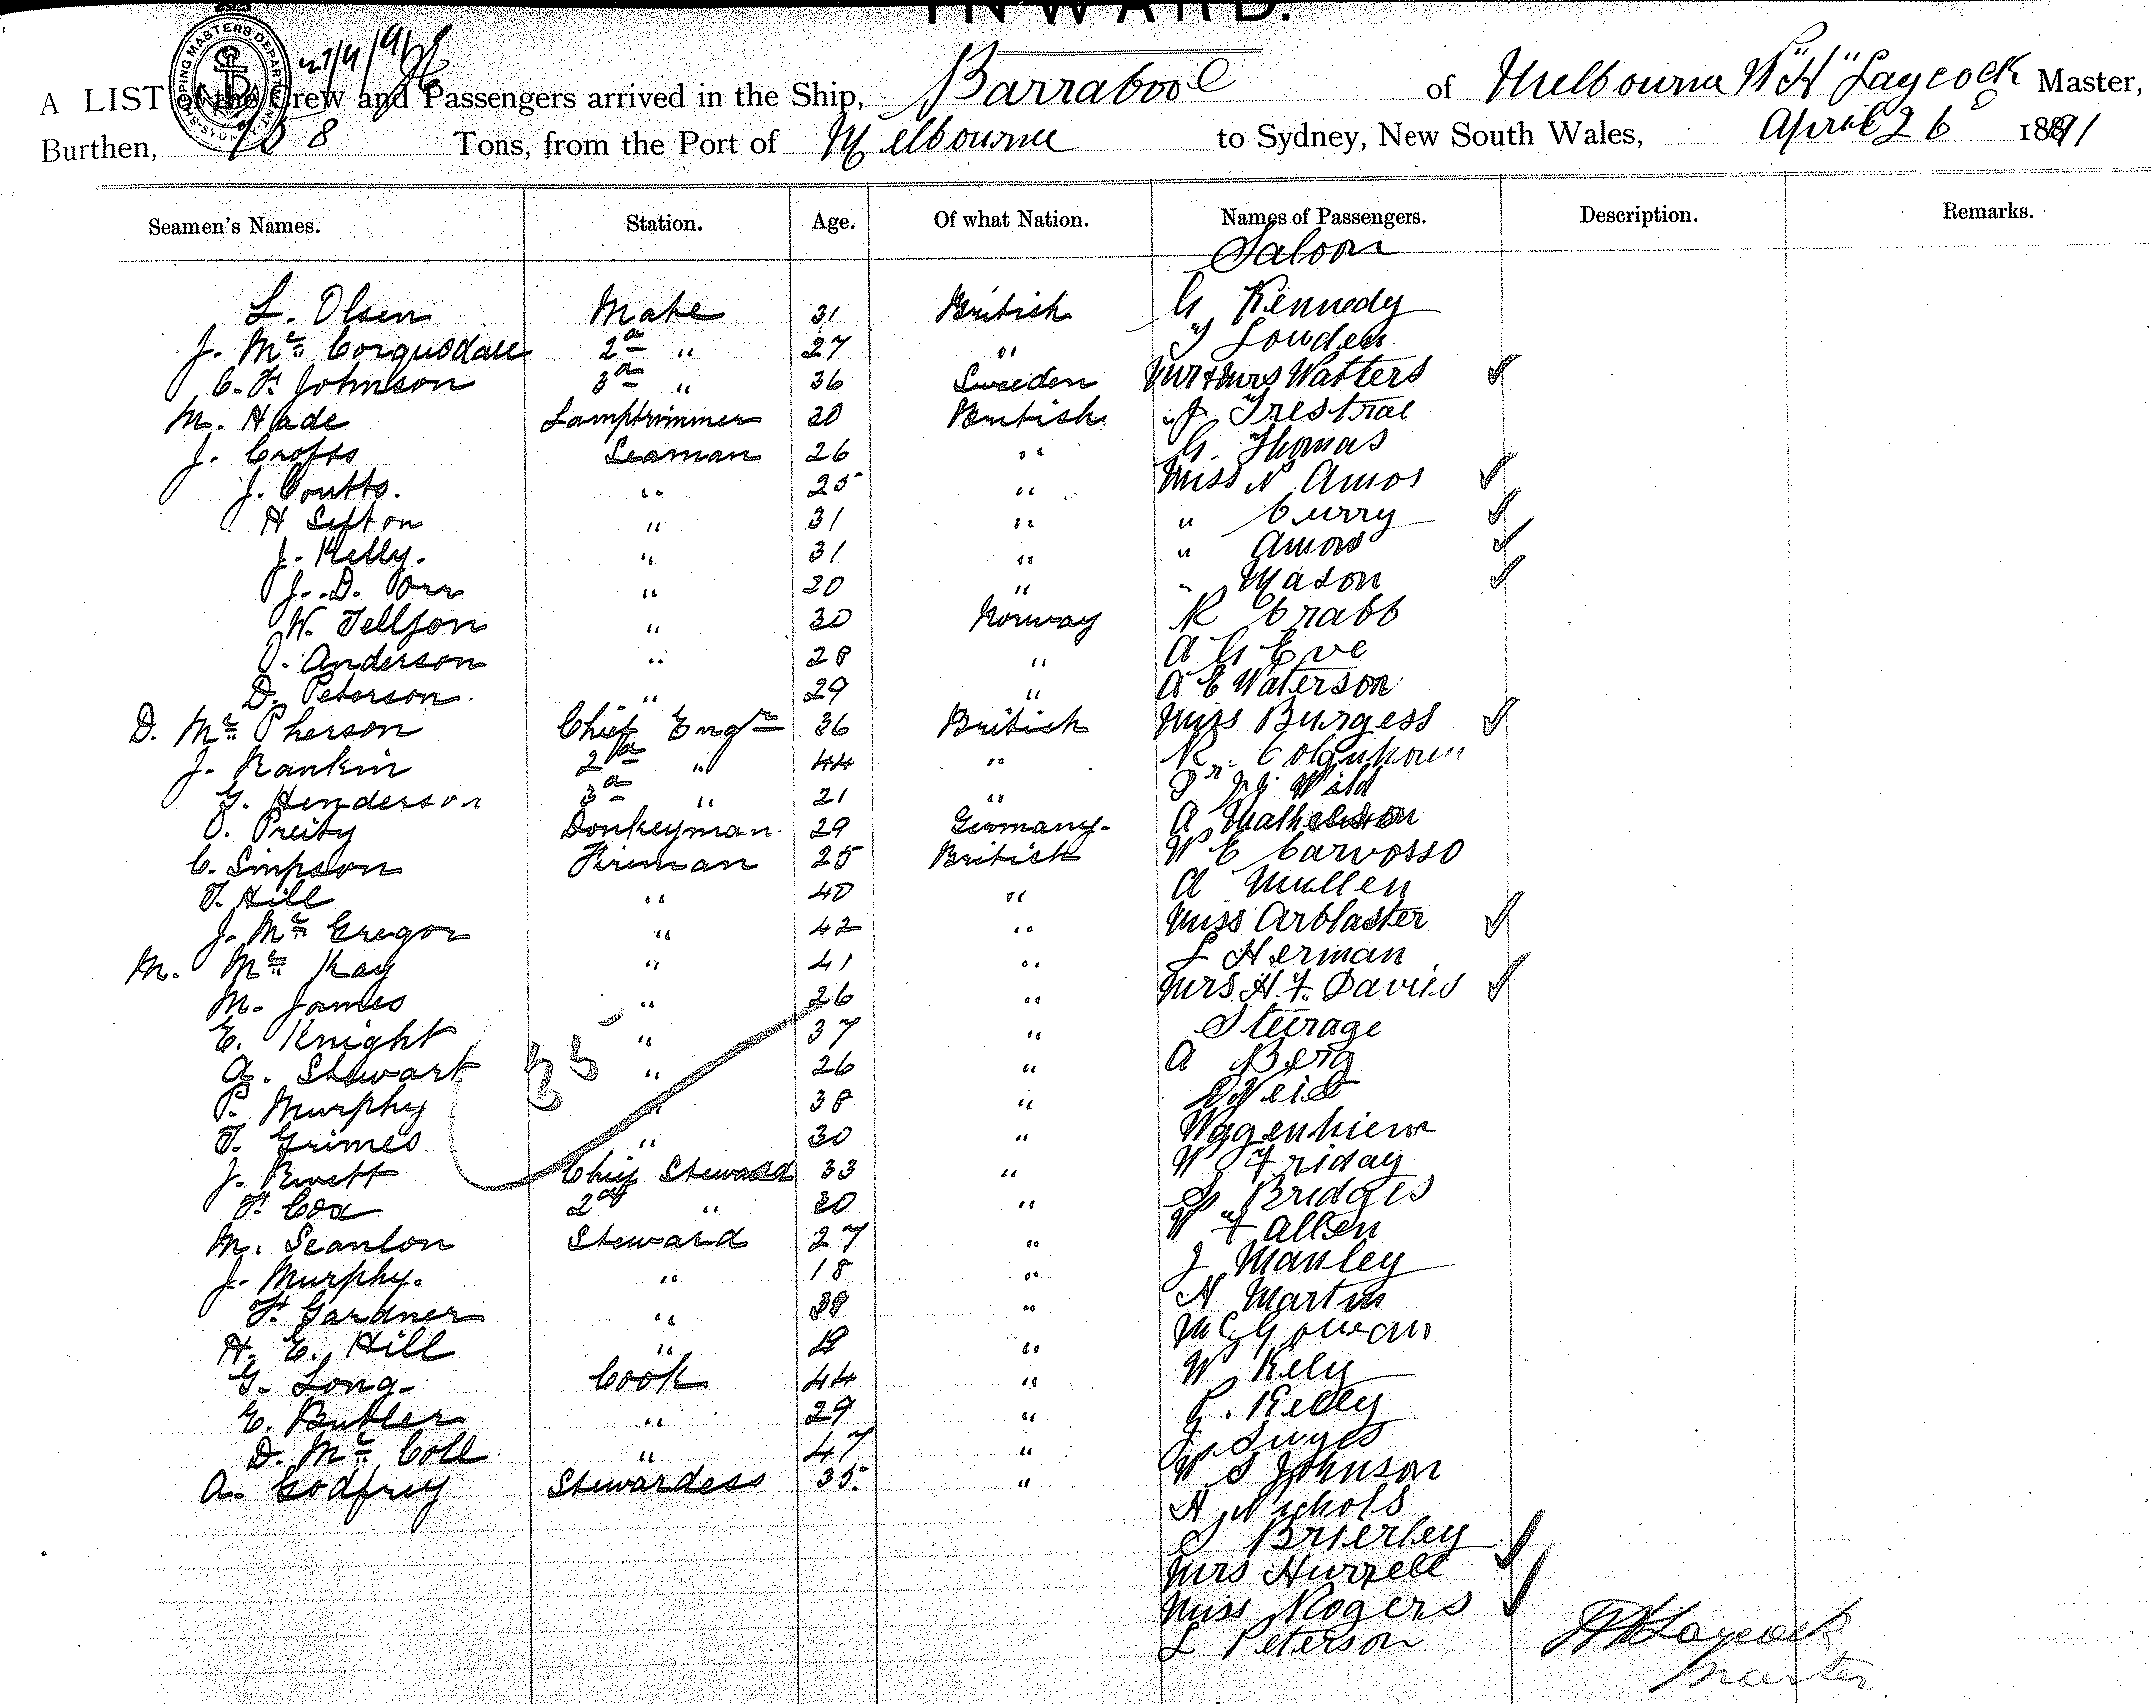 INWARD.
A LIST of the Crew and Passengers arrived in the Ship, Barrabool of Melbourne W H Laycock Master,
Burthen, 708 Tons, from the Port of Melbourne to Sydney, New South Wales, April 26 1891
Seamen's Names. Station. Age. Of what Nation. Names of Passengers. Description. Remarks.
Saloon
L. Olsen Mate 31 British G Kennedy
J. Mc Corquodale 2nd " 27 " Louden
C. F. Johnson 3rd " 36 Sweden Mr & Mrs Watters
M. Hade Lamptrimmer 20 British J Trestrail
J. Crofts Seaman 26 " G. Thomas
J. Coutts. " 25 " Miss N Amos
H Sefton " 31 " " Curry
J. Kelly. " 31 " " Amos
J. D. Orr " 20 " " Mason
W. Tellfon " 30 Norway R Crabb
J. Anderson " 28 " A G Eve
D. Peterson. " 29 " A E Waterson
D. Mc Pherson Chief Engr 36 British Miss Burgess
J. Rankin 2nd " 44 " R. Colquhoun
G. Henderson 3rd " 21 " Dr Wild
O. Preity Donkeyman 29 Germany. A Mathieson
C. Simpson Fireman 25 British W E Carvosso
T. Hill " 40 " A Mullen
J. Mc Gregor " 42 " Miss Arblaster
M. Mc Kay " 41 " L Herman
M. James " 26 " Mrs H F. Davies
E. Knight " 37 " Steerage
A. Stewart " 26 " A Berg
P. Murphy " 38 "
T. Grimes " 30 "
J. Rivett Chief Steward 33 " W Friday
F. Cox 2nd " 20 " Bridges
M. Scanlon Steward 27 " W F Allen
J. Murphy. " 18 " J Manley
F. Gardner " 28 " N Martin
H. E. Hill " " McGowan
G. Long. Cook 44 " W Kely
E. Butler " 29 " P. Kelly
D. Mc Coll " 47 "
A. Godfrey Stewardess 35 " W S Johnson
A Nichols
S Brierley
Mrs Hurrell
Miss Rogers
L Peterson
W H Laycock
Master
35